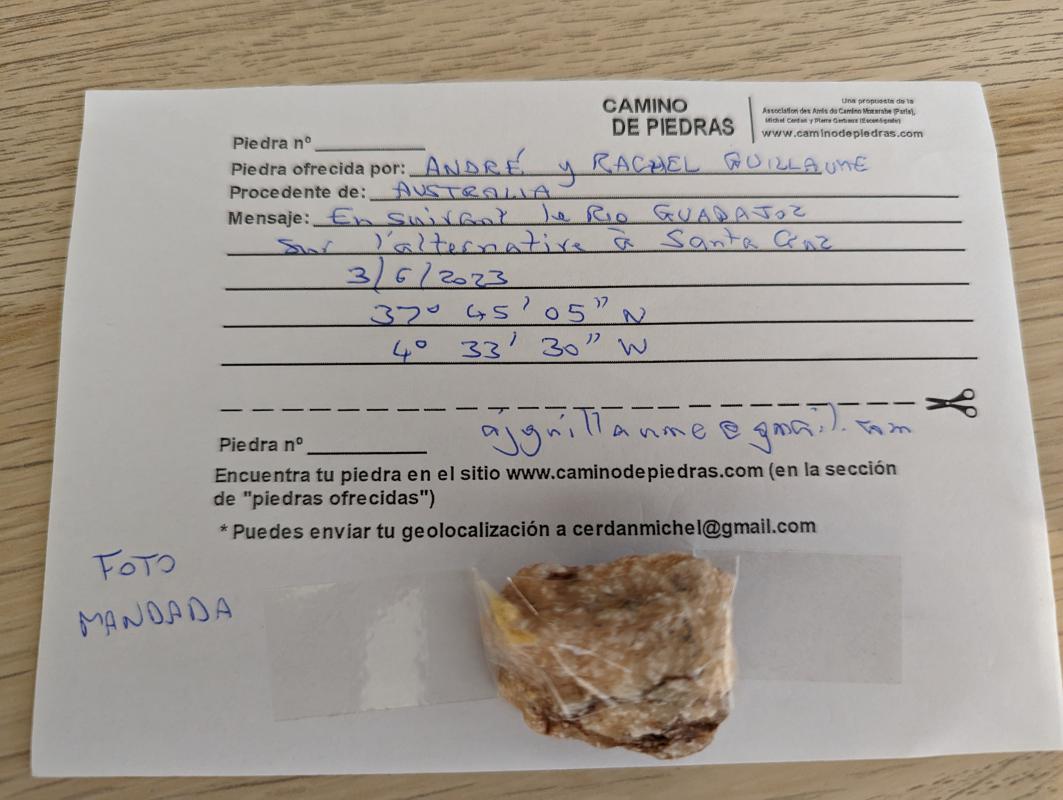 CAMINO
DE PIEDRAS
Una propuesta de la
Association des Amis du Camino Mozarabe (Paris),
Michel Cerdan y Pierre
www.caminodepiedras.com
Piedra nº
Piedra ofrecida por: ANDRÉ y RACHEL GUILLAUME
Procedente de: AUSTRALIA
Mensaje: En suivant le Rio GUADAJOZ
sur l'alternative à Santa Cruz
3/6/2023
37° 45' 05" N
4° 33' 30" W
ajguillaume@gmail.com
Piedra nº
Encuentra tu piedra en el sitio www.caminodepiedras.com (en la sección
de "piedras ofrecidas")
* Puedes enviar tu geolocalización a cerdanmichel@gmail.com
FOTO
MANDADA